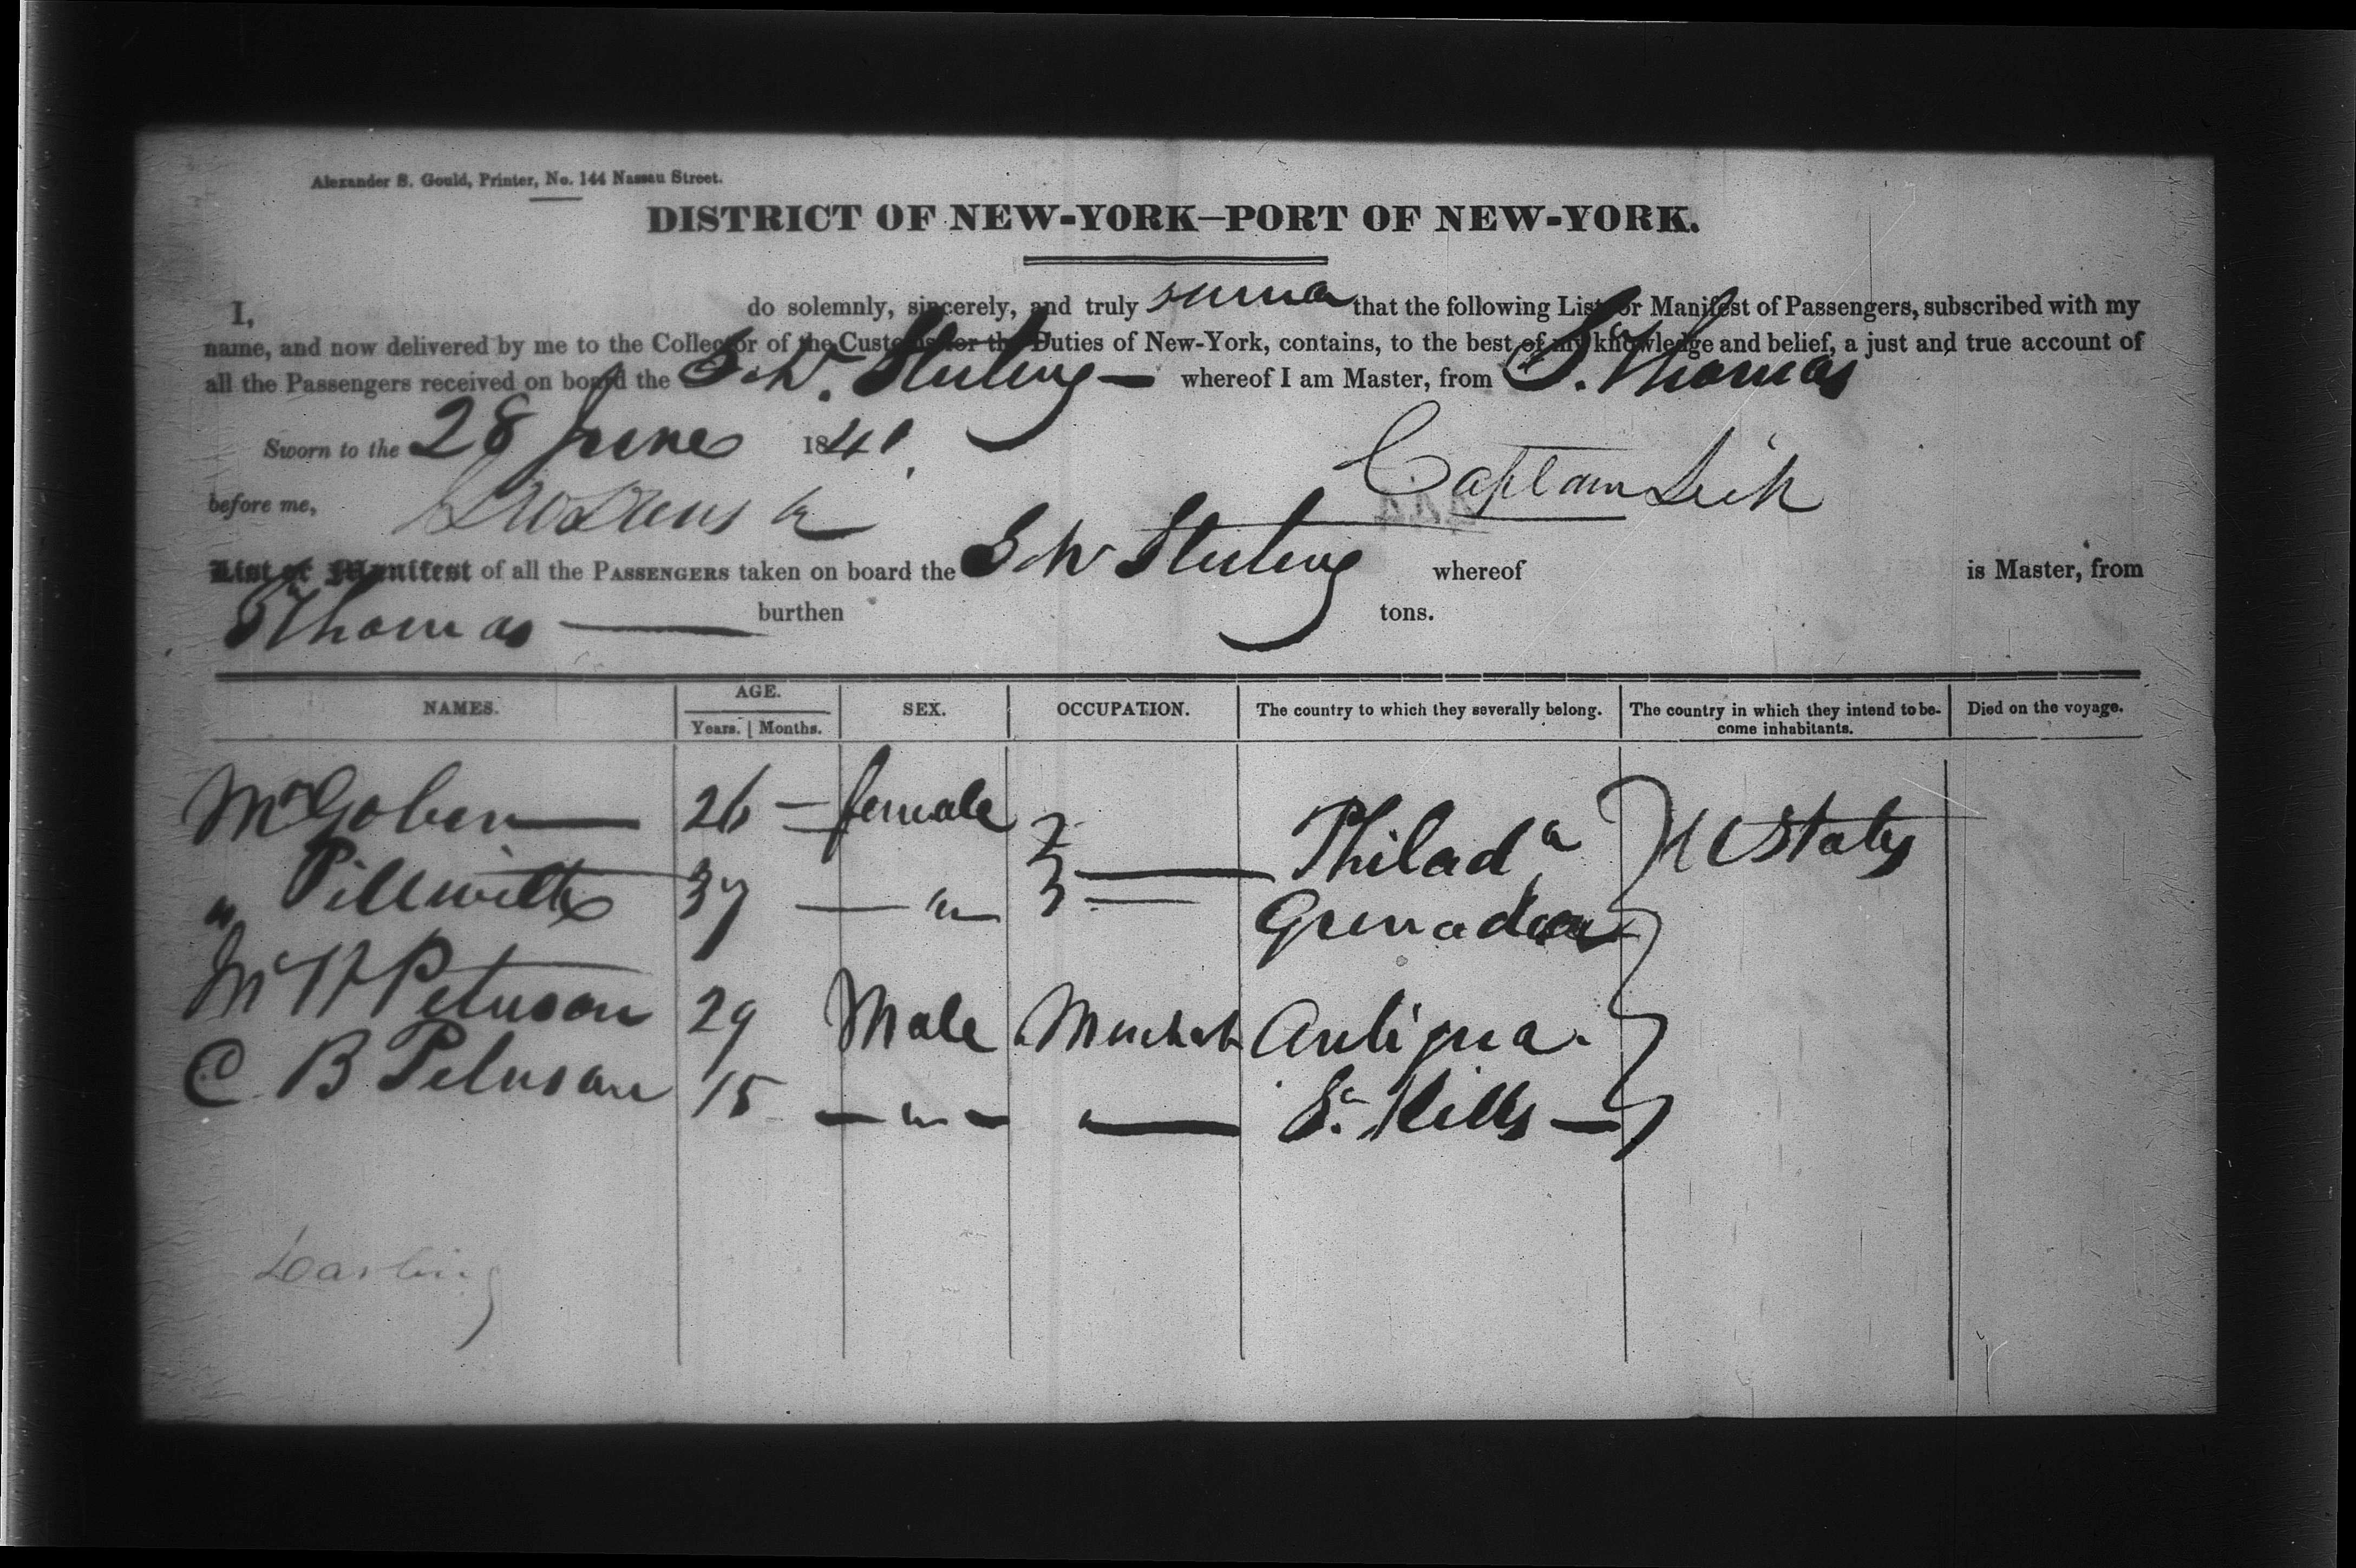 Alexander S. Gould, Printer, No. 144 Nassau Street.
DISTRICT OF NEW-YORK—PORT OF NEW-YORK.
I, do solemnly, sincerely, and truly that the following List or Manifest of Passengers, subscribed with my
name, and now delivered by me to the Collector of the Customs for the Duties of New-York, contains, to the best of my knowledge and belief, a just and true account of
all the Passengers received on board the Schr. Sterling — whereof I am Master, from St. Thomas
Sworn to the 28 June 1841
before me,
Captain
List or Manifest of all the PASSENGERS taken on board the Schr Sterling whereof is Master, from
St Thomas — burthen tons.
NAMES. AGE. SEX. OCCUPATION. The country to which they severally belong. The country in which they intend to be-
Years. Months. come inhabitants. Died on the voyage.
26 — female Philada U States
" 37 — " — Grenada
Mr H Peterson 29 Male Merchant Antigua.
C B Peterson 15 — " — — St. Kitts —